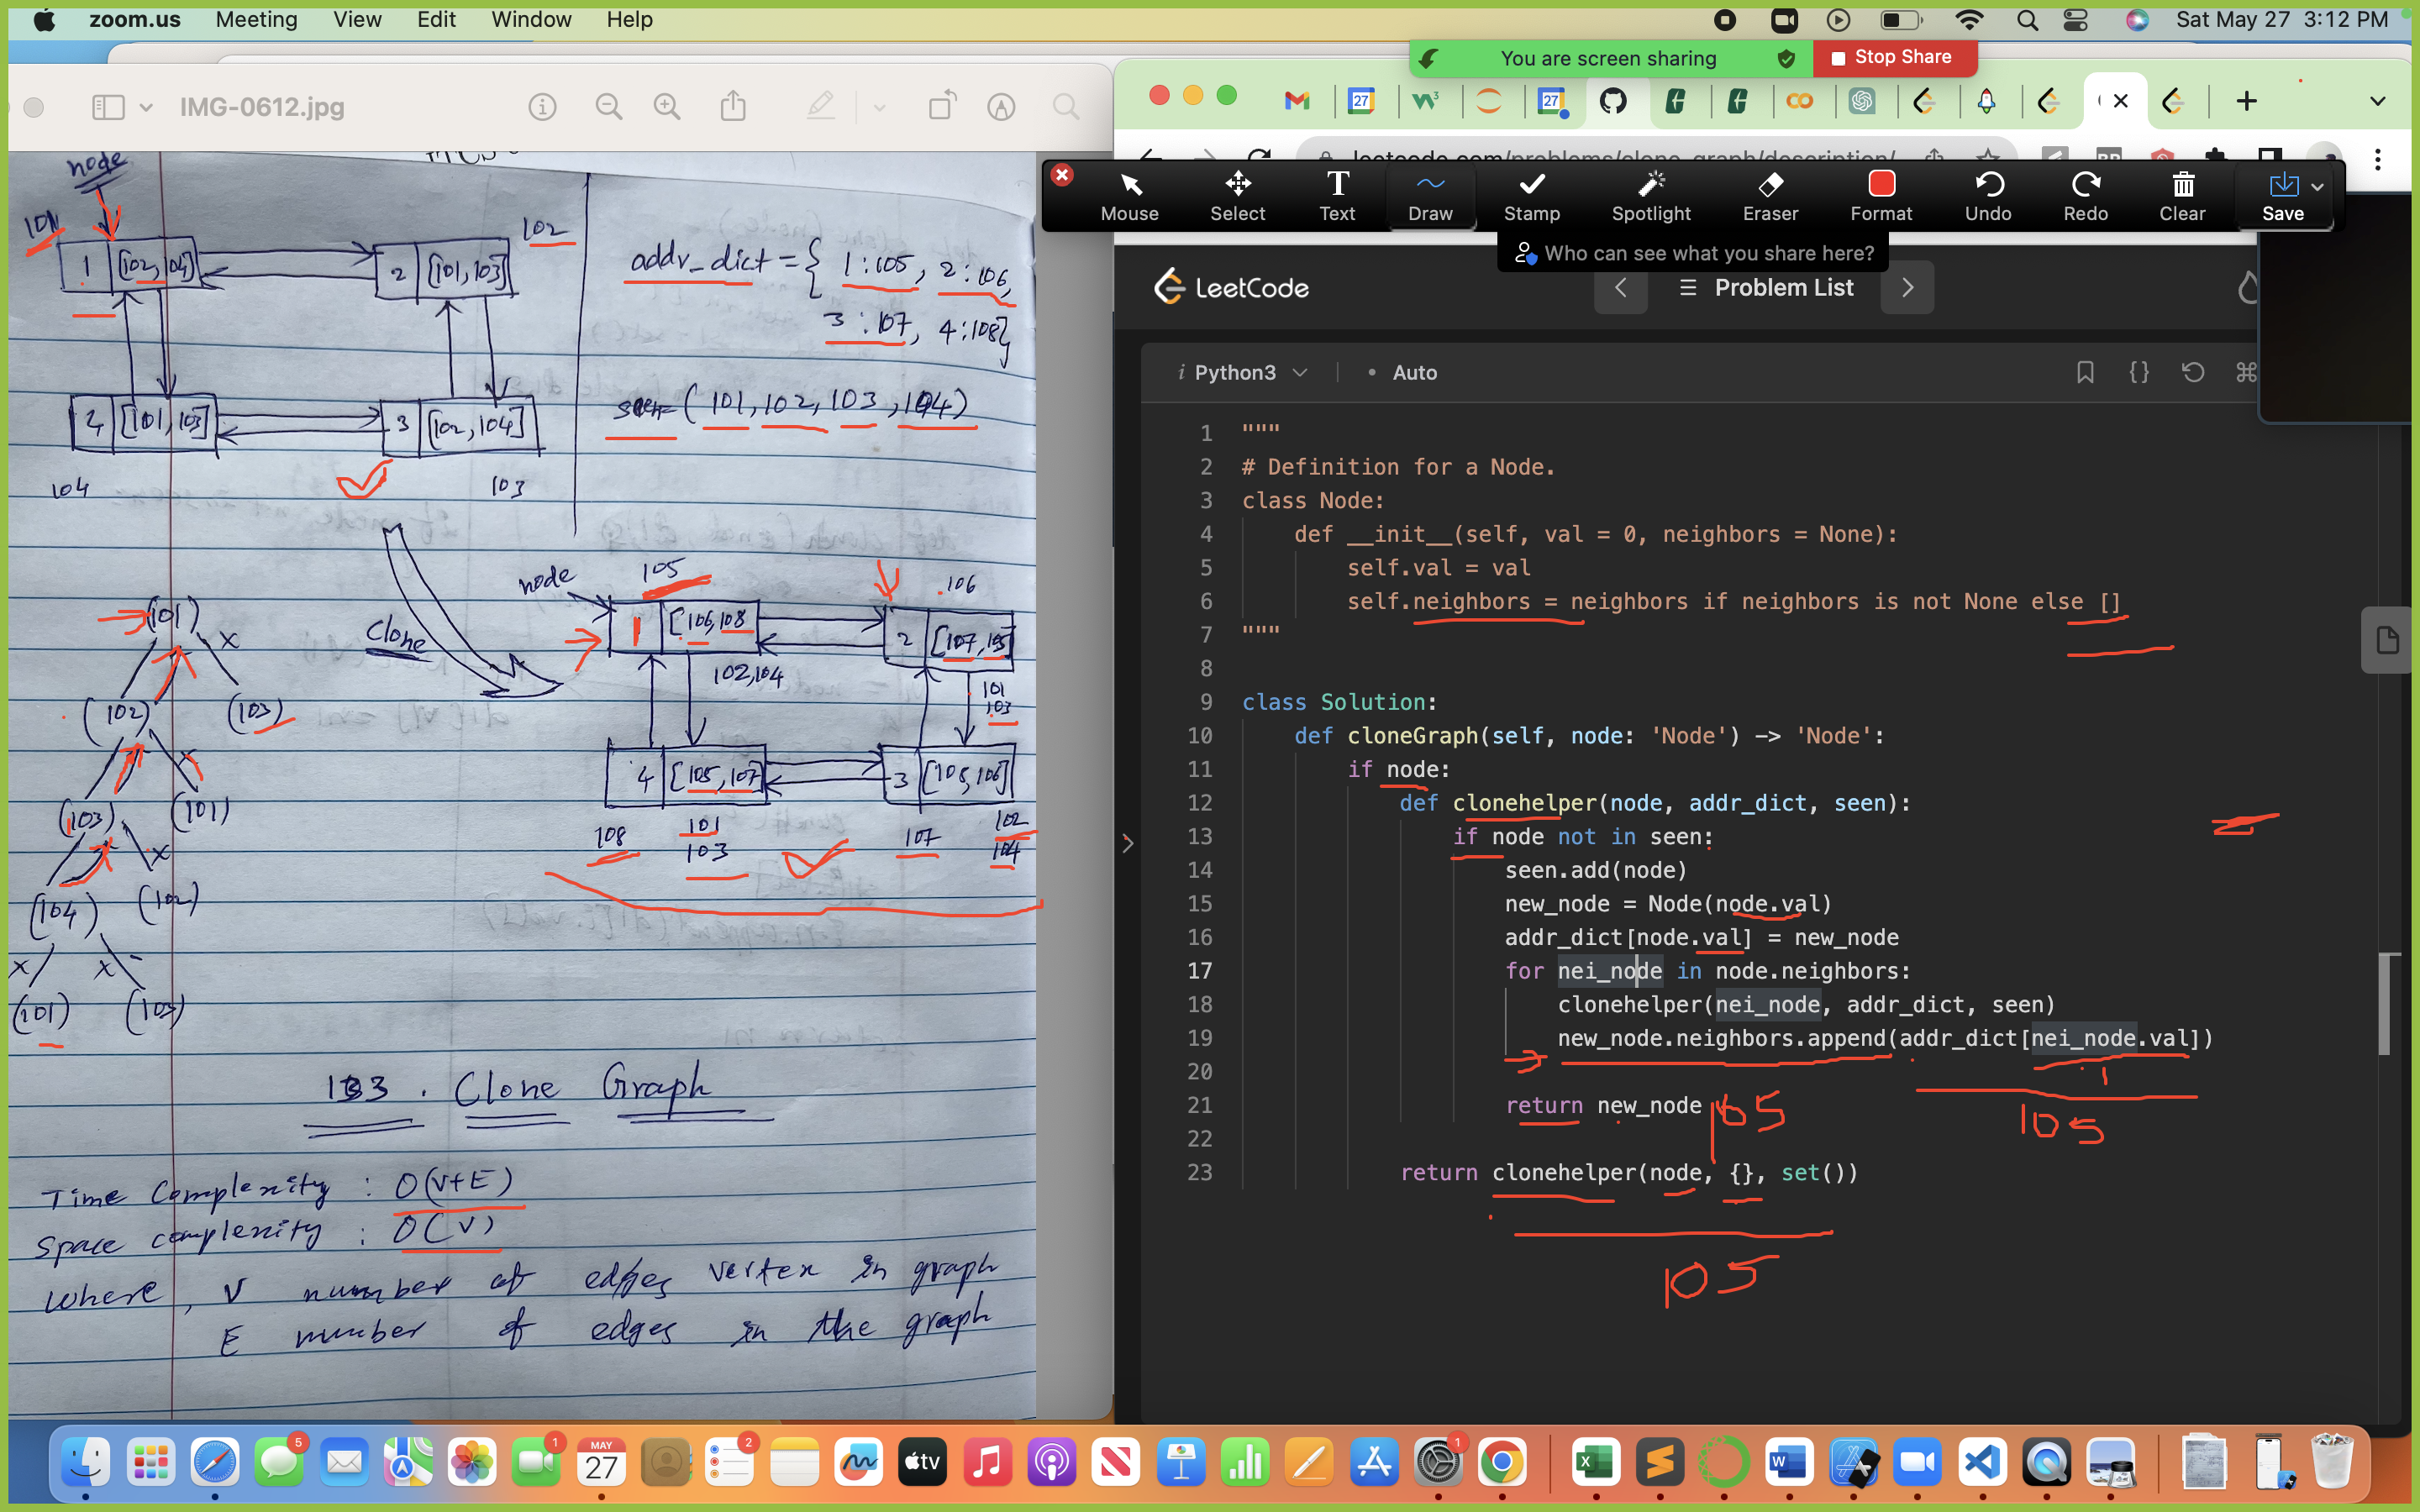 zoom.us Meeting View Edit Window Help
Sat May 27 3:12 PM
You are screen sharing
Stop Share
IMG-0612.jpg
leetcode.com/problems/clone-graph/description/
Mouse Select Text Draw Stamp Spotlight Eraser Format Undo Redo Clear Save
Who can see what you share here?
LeetCode
Problem List
Python3
Auto
1 """
2 # Definition for a Node.
3 class Node:
4 def __init__(self, val = 0, neighbors = None):
5 self.val = val
6 self.neighbors = neighbors if neighbors is not None else []
7 """
8
9 class Solution:
10 def cloneGraph(self, node: 'Node') -> 'Node':
11 if node:
12 def clonehelper(node, addr_dict, seen):
13 if node not in seen:
14 seen.add(node)
15 new_node = Node(node.val)
16 addr_dict[node.val] = new_node
17 for nei_node in node.neighbors:
18 clonehelper(nei_node, addr_dict, seen)
19 new_node.neighbors.append(addr_dict[nei_node.val])
20
21 return new_node
22
23 return clonehelper(node, {}, set())
105
105
105
node
101
1 [102, 104]
2 [101, 103]
102
4 [101, 103]
3 [102, 104]
104
103
addr_dict = { 1:105, 2:106,
3:107, 4:108}
seen = (101, 102, 103, 104)
Clone
node
105
106
1 [106, 108
2 [107, 105]
102, 104
101
103
4 [105, 107]
3 [105, 106]
108
101
103
107
102
104
(101)
x
(102) (103)
x
(103) (101)
x
(104) (102)
x x
(101) (103)
133. Clone Graph
Time Complexity : O(V+E)
Space complexity : O(V)
where, V number of edges vertex in graph
E number of edges in the graph
5
1
MAY
27
2
tv
1